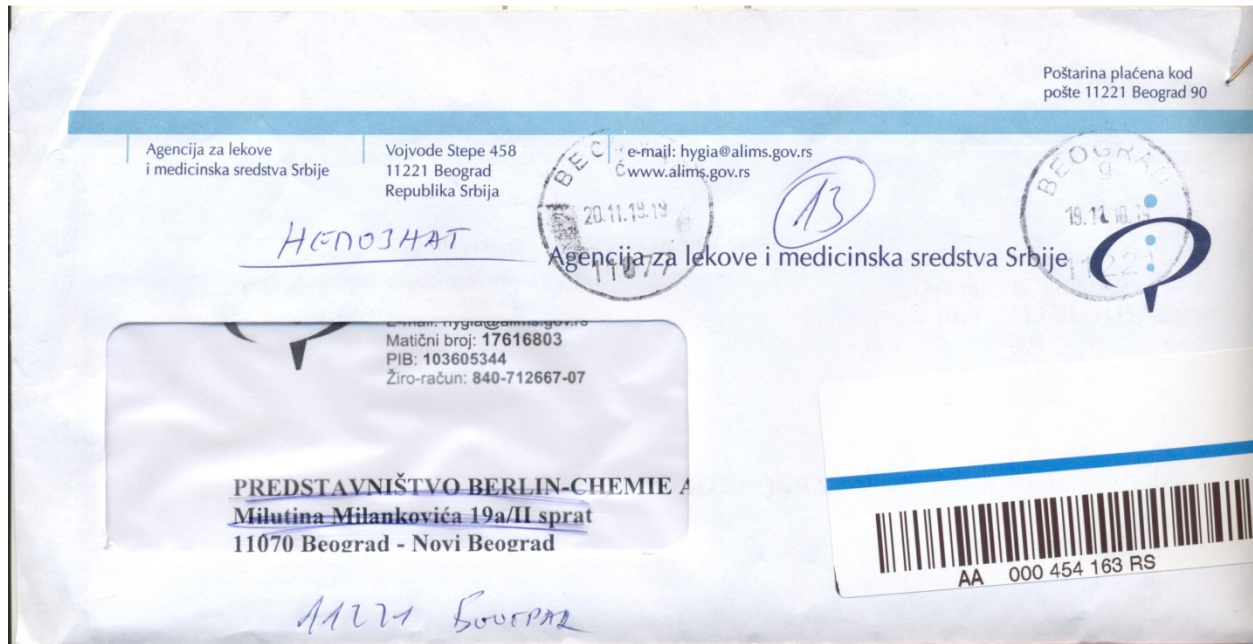 Poštarina plaćena kod
pošte 11221 Beograd 90
Agencija za lekove
i medicinska sredstva Srbije
Vojvode Stepe 458
11221 Beograd
Republika Srbija
e-mail: hygia@alims.gov.rs
www.alims.gov.rs
20.11.19.19
11077
13
BEOGRAD
9
19.11
11221
НЕПОЗНАТ
Agencija za lekove i medicinska sredstva Srbije
E-mail: hygia@alims.gov.rs
Matični broj: 17616803
PIB: 103605344
Žiro-račun: 840-712667-07
PREDSTAVNIŠTVO BERLIN-CHEMIE A
Milutina Milankovića 19a/II sprat
11070 Beograd - Novi Beograd
AA 000 454 163 RS
11221 Београд